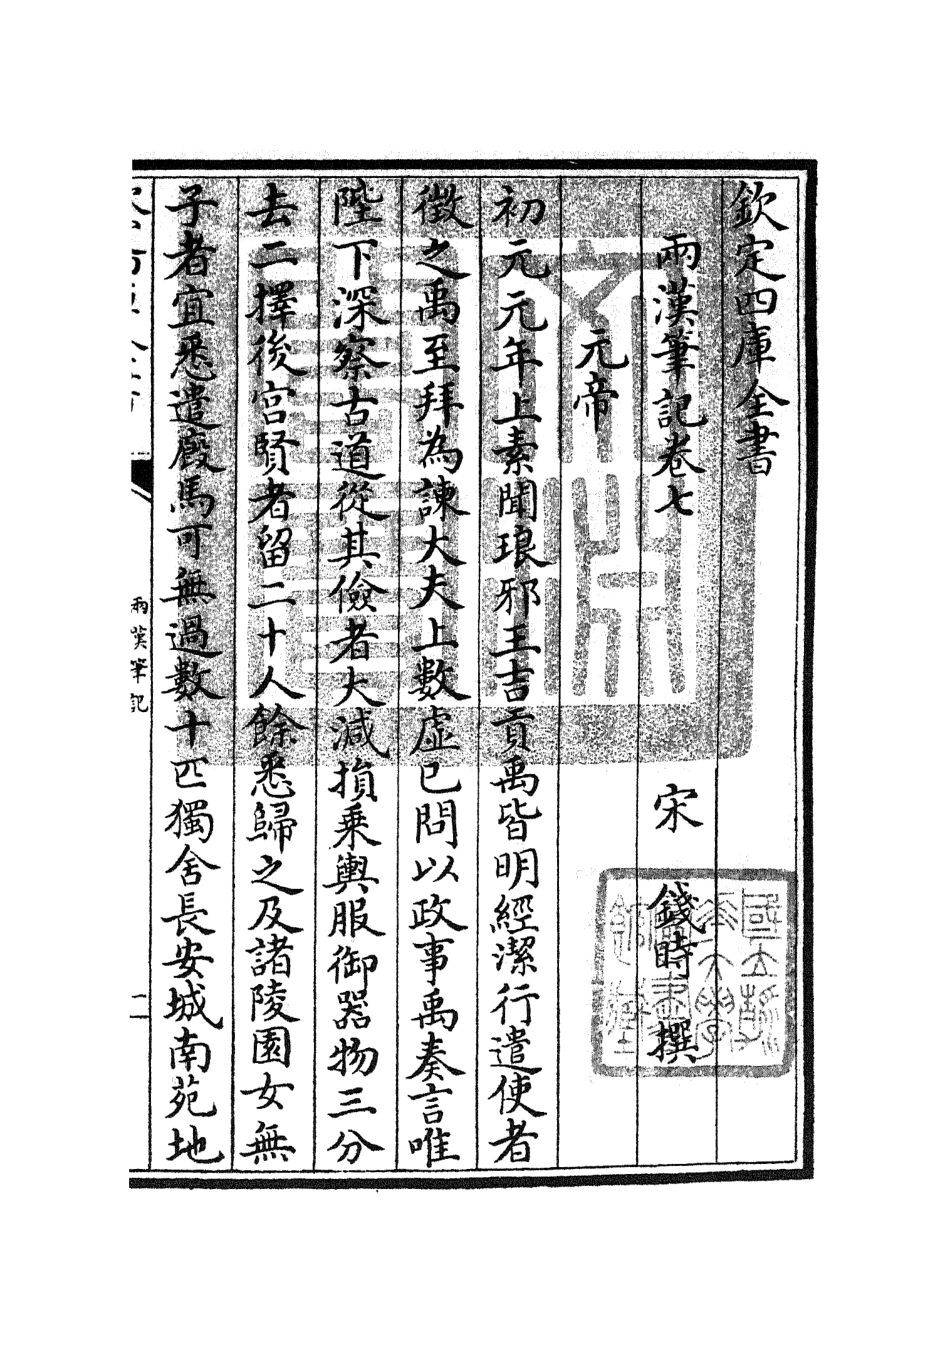 欽定四庫全書
兩漢筆記卷七
宋 錢時 撰
元帝
初元元年上素聞琅邪王吉貢禹皆明經潔行遣使者
徵之禹至拜為諫大夫上數虛已問以政事禹奏言唯
陛下深察古道從其儉者大減損乗輿服御器物三分
去二擇後宮賢者留二十人餘悉歸之及諸陵園女無
子者宜悉遣廐馬可無過數十匹獨舍長安城南苑地
兩漢筆記